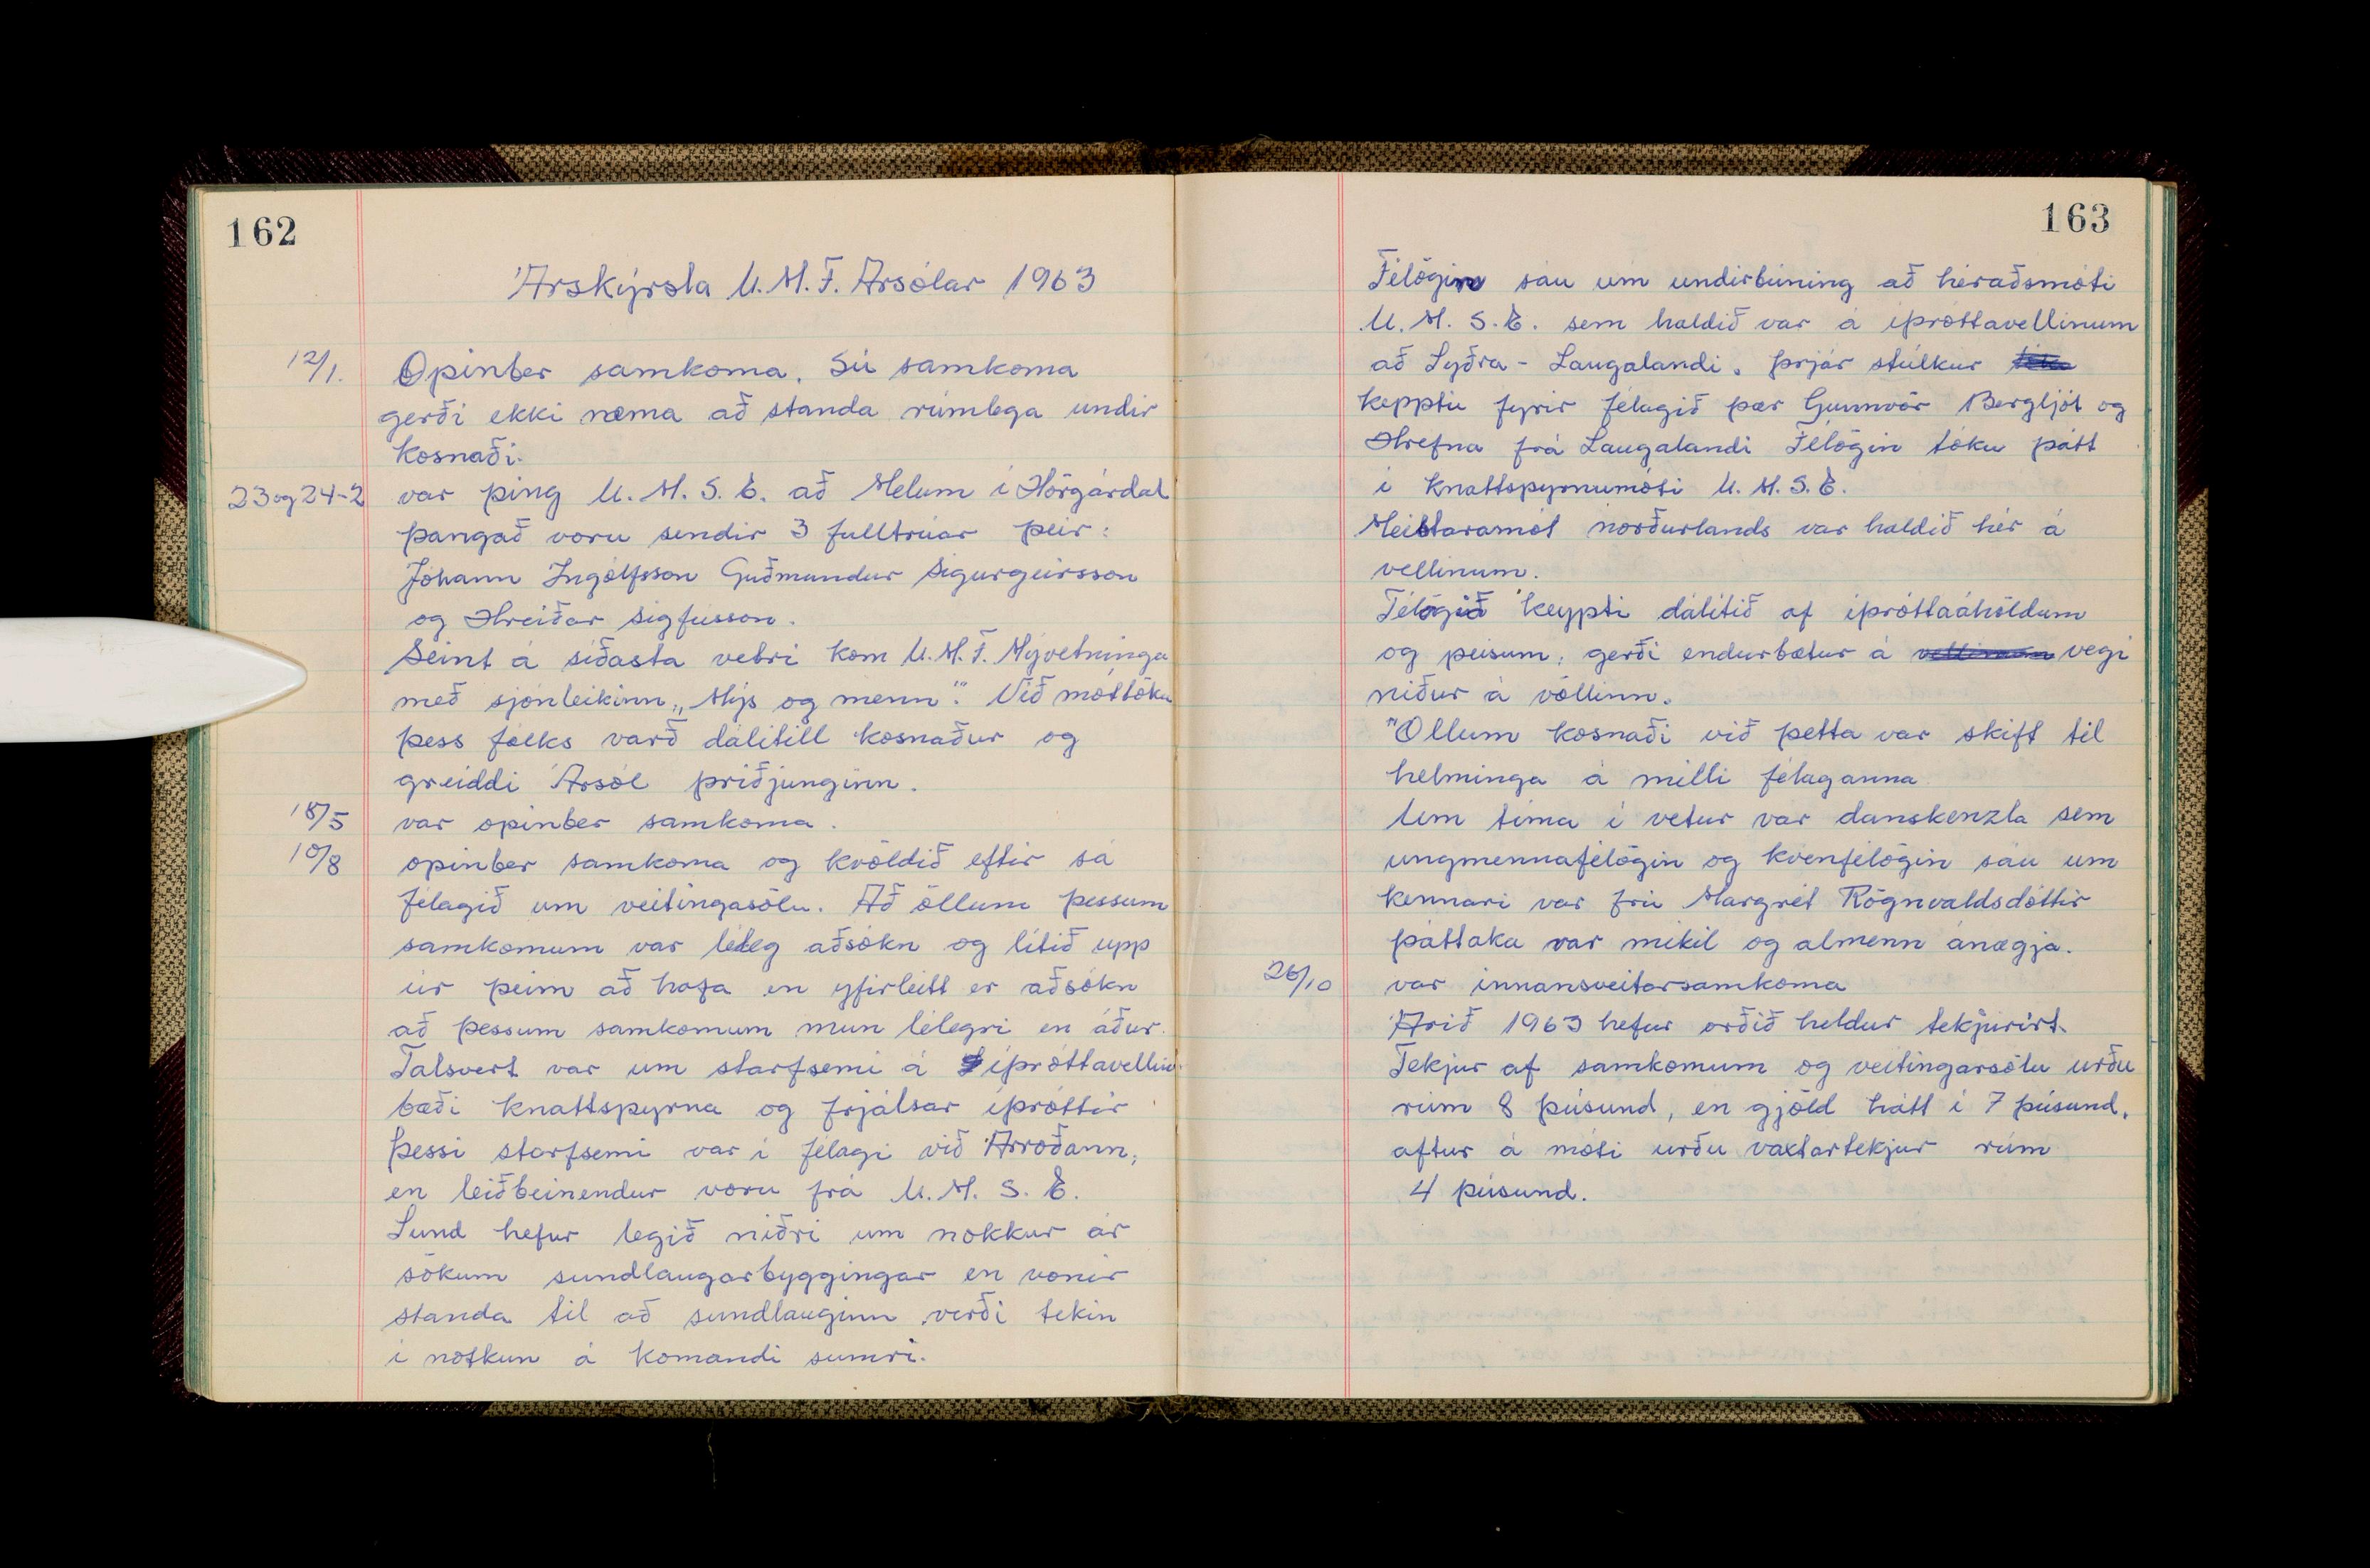 162
Árskýrsla U.M.F. Ársólar 1963
12/1. Opinber samkoma. Sú samkoma
gerði ekki næma að standa rúmlega undir
kosnaði.
23 og 24-2 var þing U.M.S.E. að Melum í Hörgárdal
þangað voru sendir 3 fulltrúar þeir:
Jóhann Ingólfsson Guðmundur Sigurgeirsson
og Hreiðar Sigfússon.
Seint á síðasta vetri kom U.M.F. Mývetninga
með sjónleikinn „Mýs og menn“. Við móttöku
þess fólks varð dálitill kosnaður og
greiddi Ársól þriðjunginn.
18/5 var opinber samkoma.
10/8 opinber samkoma og kvöldið eftir sá
félagið um veitingasölu. Að öllum þessum
samkomum var léleg aðsókn og lítið upp
úr þeim að hafa en yfirleitt er aðsókn
að þessum samkomum mun lélegri en áður.
Talsvert var um starfsemi á íþróttavellin
bæði knattspyrna og frjálsar íþróttir
Þessi starfsemi var í félagi við Árroðann,
en leiðbeinendur voru frá U.M.S.E.
Sund hefur legið niðri um nokkur ár
sökum sundlaugarbyggingar en vonir
standa til að sundlauginn verði tekin
í notkun á komandi sumri.
163
Félögin sáu um undirbúning að héraðsmóti
U.M.S.E. sem haldið var á íþróttavellinum
að Syðra-Laugalandi. Þrjár stúlkur
kepptu fyrir félagið þær Gunnvör Bergljót og
Hrefna frá Laugalandi Félögin tóku þátt
í knattspyrnumóti U.M.S.E.
Meistaramót norðurlands var haldið hér á
vellinum.
Félögið keypti dálítið af íþróttaáhöldum
og peisum, gerði endurbætur á vegi
niður á völlinn.
Öllum kosnaði við þetta var skift til
helminga á milli félaganna
Um tíma í vetur var danskenzla sem
ungmennafélögin og kvenfélögin sáu um
kennari var frú Margrét Rögnvaldsdóttir
þáttaka var mikil og almenn ánægja.
26/10 var innansveitarsamkoma
Árið 1963 hefur orðið heldur tekjurírt.
Tekjur af samkomum og veitingarsölu urðu
rúm 8 þúsund, en gjöld hátt í 7 þúsund,
aftur á móti urðu vaxtartekjur rúm
4 þúsund.